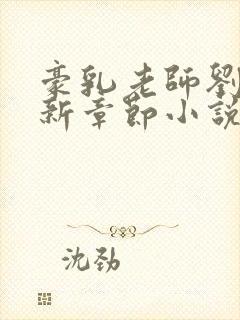 豪乳老師劉
新章節小說
沈劲